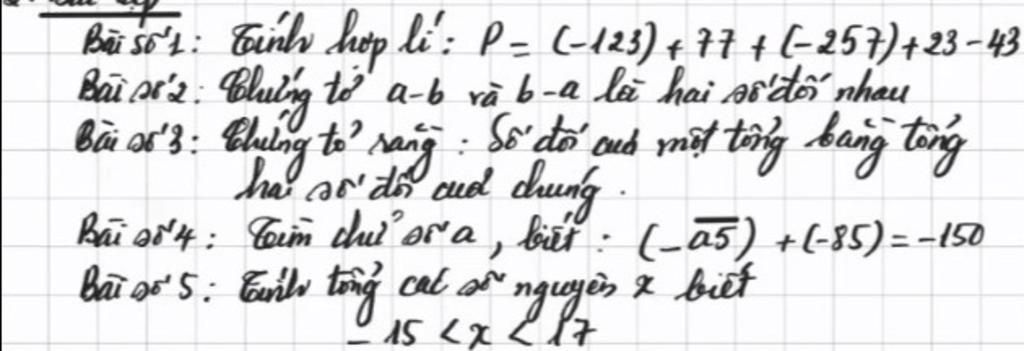 Bài số 1: Tính hợp lí: P = (-123) + 77 + (-257) + 23 - 43
Bài số 2: Chứng tỏ a-b và b-a là hai số đối nhau
Bài số 3: Chứng tỏ rằng: Số đối của một tổng bằng tổng
hai số đối của chúng.
Bài số 4: Tìm chữ số a, biết: (-\overline{a5}) + (-85) = -150
Bài số 5: Tính tổng các số nguyên x biết
-15 < x < 17